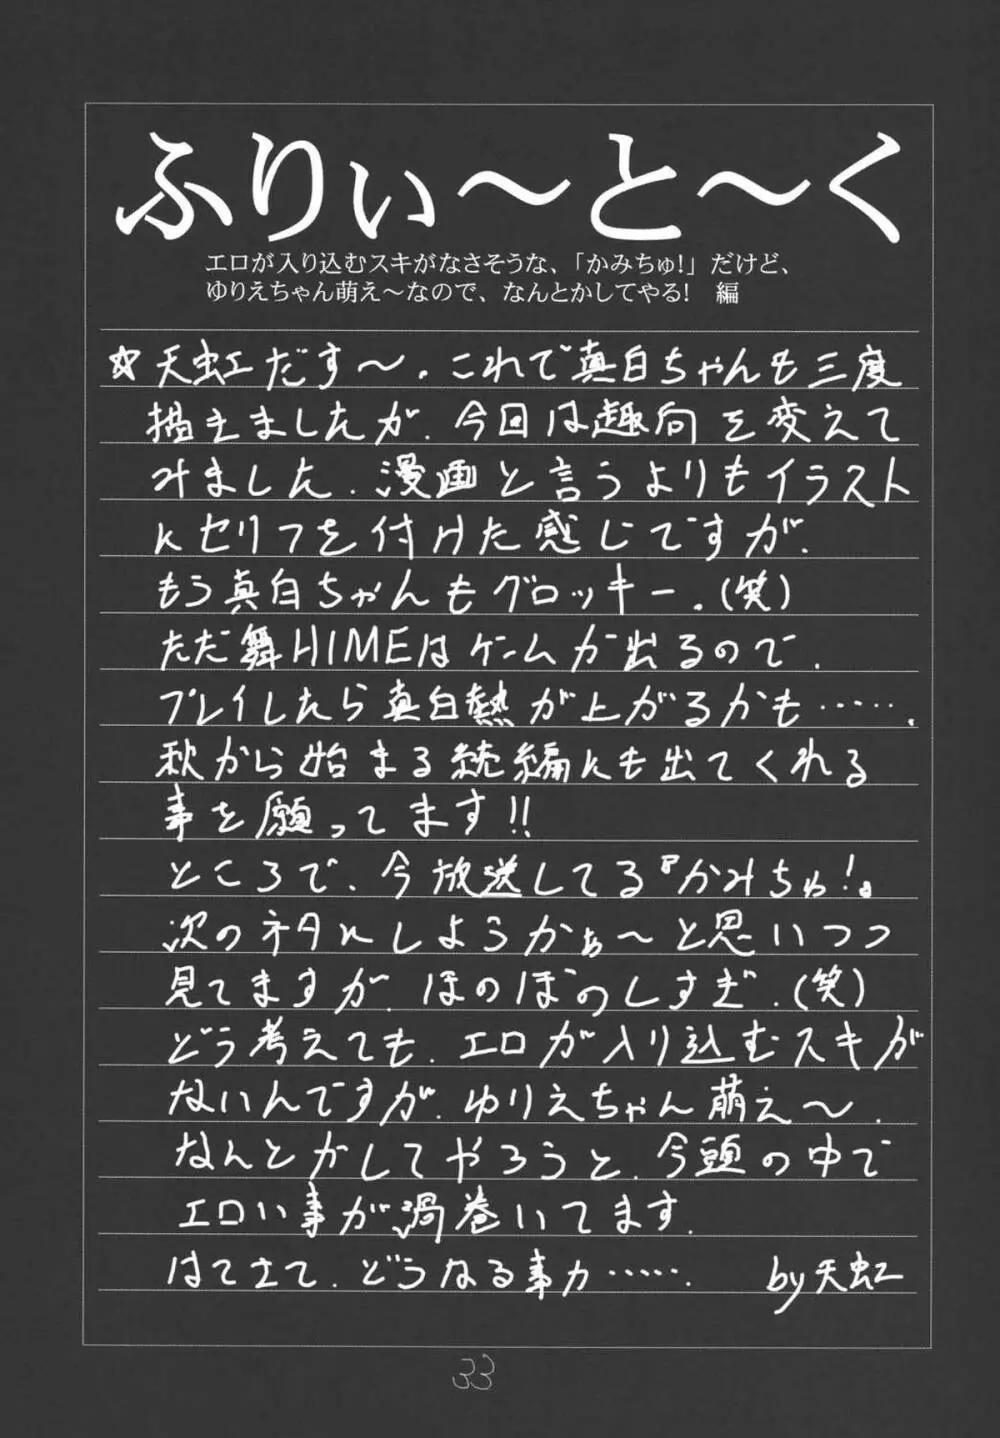 ふりぃ～と～く
エロが入り込むスキがなさそうな、「かみちゅ!」だけど、
ゆりえちゃん萌え～なので、なんとかしてやる!　編
☆天虹だす～。これで真白ちゃんも三度
描きましたが、今回は趣向を変えて
みました。漫画と言うよりもイラスト
にセリフを付けた感じですが、
もう真白ちゃんもグロッキー。(笑)
ただ舞HIMEはゲームが出るので、
プレイしたら真白熱が上がるかも……。
秋から始まる続編にも出てくれる
事を願ってます!!
ところで、今放送してる『かみちゅ!』
次のネタにしようかぁ～と思いつつ
見てますが、ほのぼのしすぎ。(笑)
どう考えても、エロが入り込むスキが
ないんですが、ゆりえちゃん萌え～。
なんとかしてやろうと、今頭の中で
エロい事が渦巻いてます。
はてさて、どうなる事か……。 by天虹
33